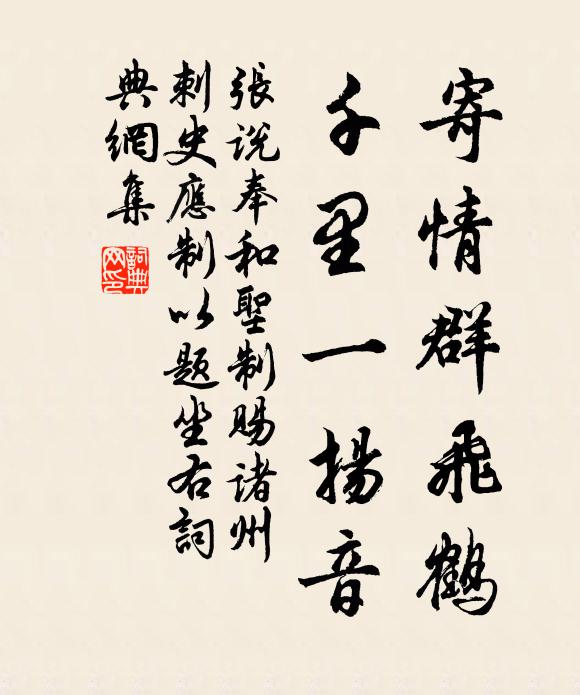 寄情群飛鶴
千里一揚音
張說奉和聖制賜諸州
刺史應制以題坐右詞
典網集
詞典网印